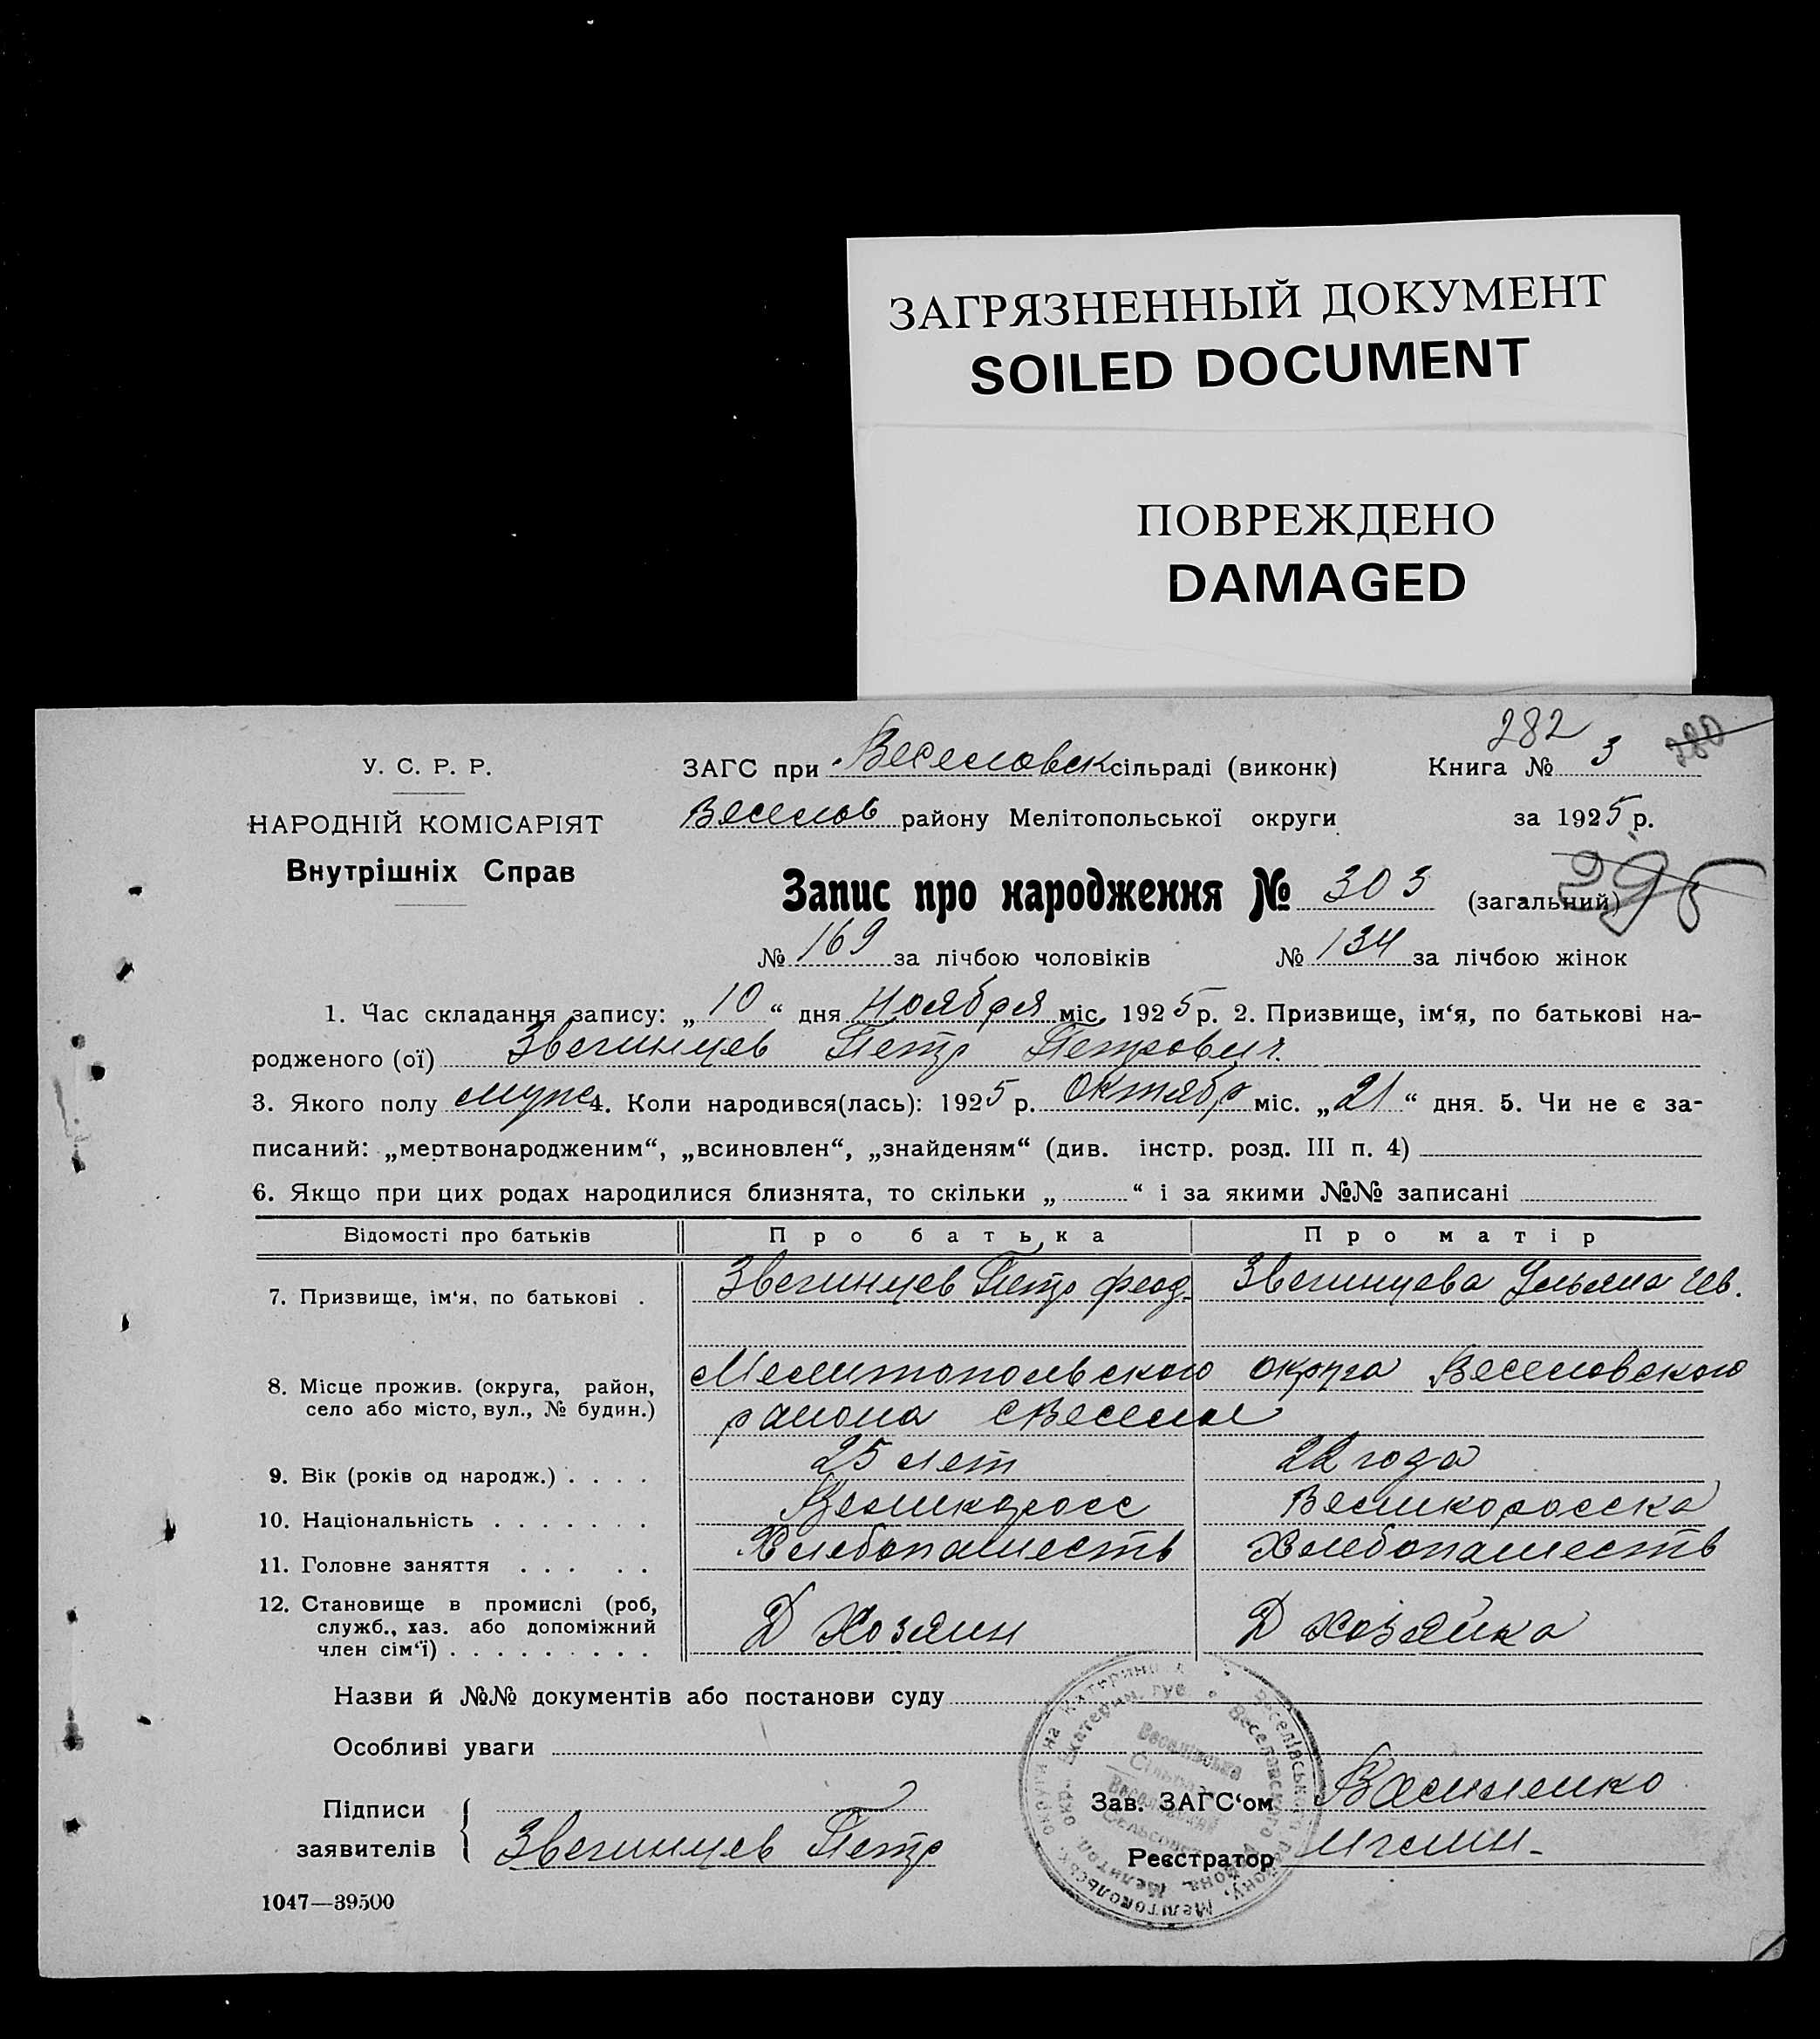 ЗАГРЯЗНЕННЫЙ ДОКУМЕНТ
SOILED DOCUMENT
ПОВРЕЖДЕНО
DAMAGED
282
280
У. С. Р. Р.
НАРОДНІЙ КОМІСАРІЯТ
Внутрішніх Справ
ЗАГС при Веселовск сільраді (виконк) Книга № 3
Веселов району Мелітопольської округи за 1925 р.
Запис про народження № 303 (загальний)
№ 169 за лічбою чоловіків № 134 за лічбою жінок
1. Час складання запису: „10“ дня Ноября міс. 1925 р. 2. Призвище, ім‘я, по батькові на-
родженого (ої) Звегинцев Петр Петрович.
3. Якого полу муж 4. Коли народився(лась): 1925 р. Октябр міс. „21“ дня. 5. Чи не є за-
писаний: „мертвонародженим“, „всиновлен“, „знайденям“ (див. інстр. розд. III п. 4)
6. Якщо при цих родах народилися близнята, то скільки „ “ і за якими №№ записані
Відомості про батьків Про батька Про матір
7. Призвище, ім‘я, по батькові . Звегинцев Петр Феод. Звегинцева Ульяна Ив.
8. Місце прожив. (округа, район, Мелитопольского округа Веселовского
село або місто, вул., № будин.) района с Веселое
9. Вік (років од народж.) . . . . 25 лет 22 года
10. Національність . . . . . . . Великоросс Великоросска
11. Головне заняття . . . . . Хлебопашеств Хлебопашеств
12. Становище в промислі (роб,
служб., хаз. або допоміжний Д Хозяин Д хозяйка
член сім‘ї) . . . . . . . . .
Назви й №№ документів або постанови суду
Особливі уваги
Підписи
заявителів Звегинцев Петр
Зав. ЗАГС‘ом Василенко
Реєстратор
1047—39500